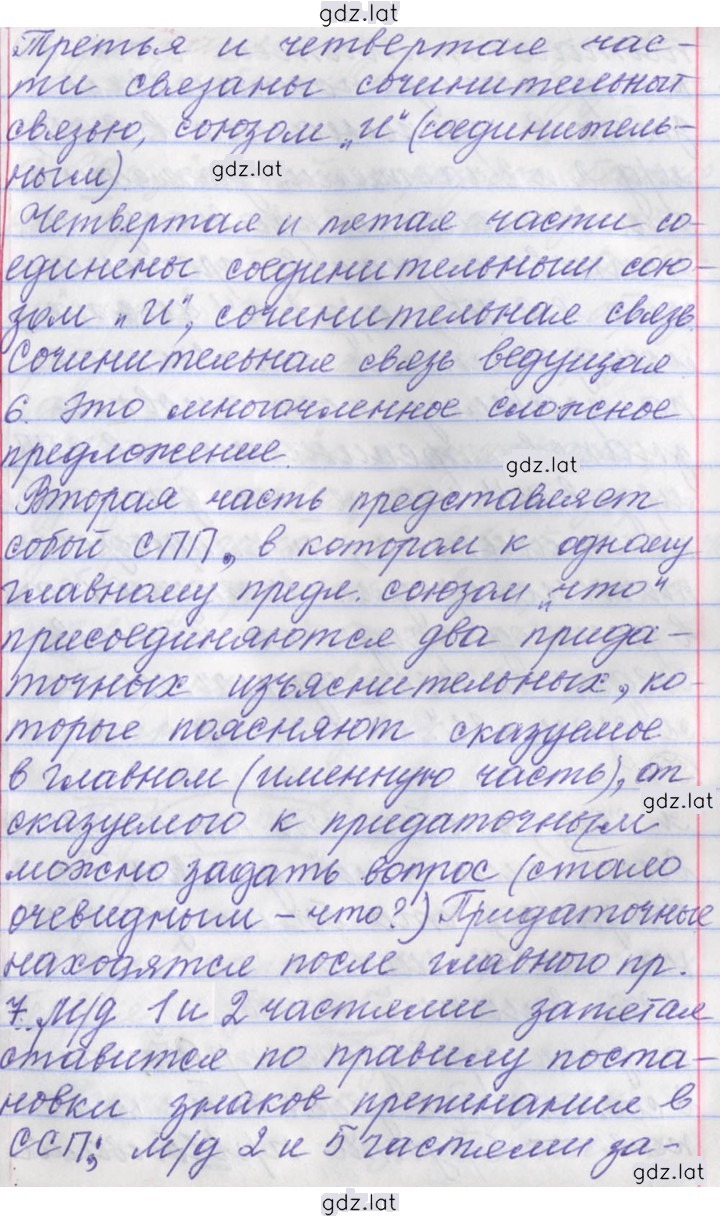 gdz.lat
Третья и четвертая час-
ти связаны сочинительной
связью, союзом „И" (соединитель-
ным)
gdz.lat
Четвертая и пятая части со-
единены соединительным сою-
зом „И", сочинительная связь.
Сочинительная связь ведущая.
6. Это многочленное сложное
предложение.
gdz.lat
Вторая часть представляет
собой СПП, в котором к одному
главному предл. союзом „что"
присоединяются два прида-
точных изъяснительных, ко-
торые поясняют сказуемое
в главном (именную часть), от
gdz.lat
сказуемого к придаточным
можно задать вопрос (стало
очевидным – что?) Придаточные
находятся после главного пр.
7. М/д 1 и 2 частями запятая
ставится по правилу поста-
новки знаков препинания в
ССП; м/д 2 и 5 частями за-
gdz.lat
gdz.lat